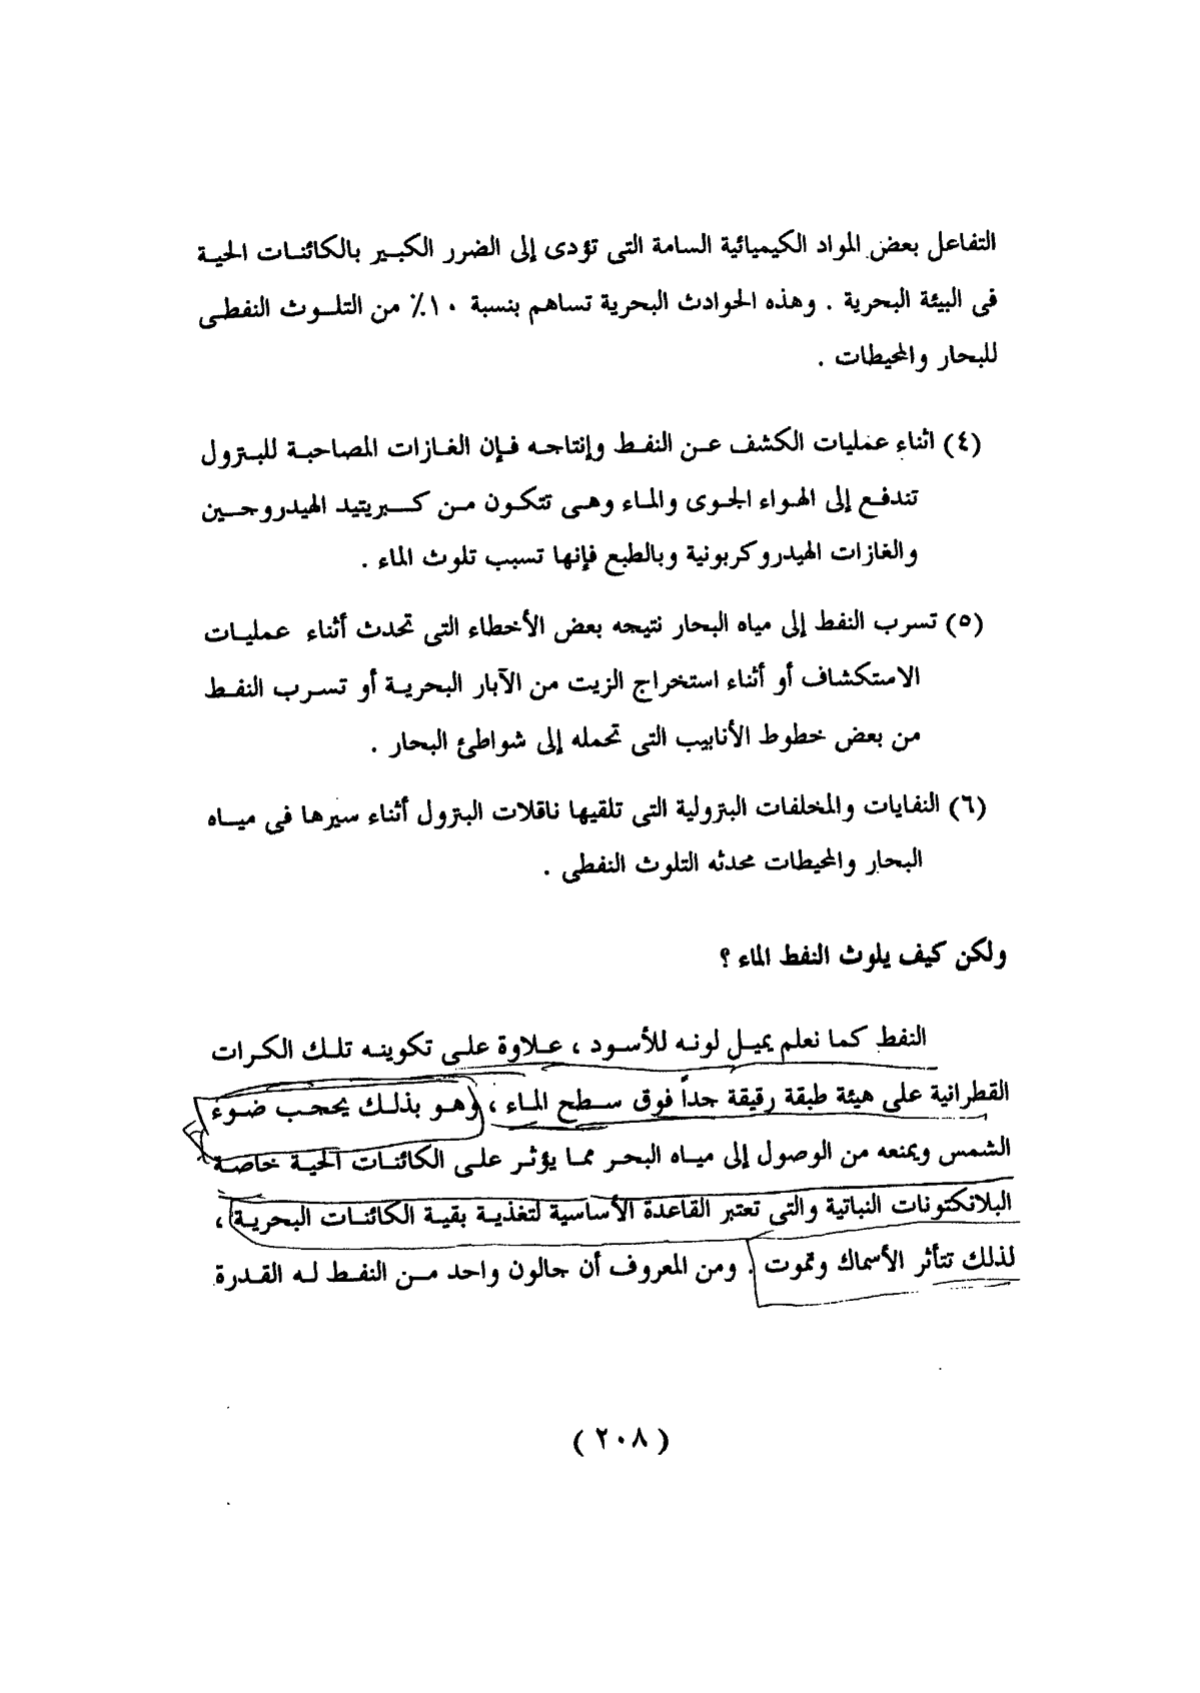 التفاعل بعض المواد الكيميائية السامة التى تؤدى إلى الضرر الكبير بالكائنات الحية
فى البيئة البحرية . وهذه الحوادث البحرية تساهم بنسبة ١٠٪ من التلوث النفطى
للبحار والمحيطات .
(٤) اثناء عمليات الكشف عن النفط وإنتاجه فإن الغازات المصاحبة للبترول
تندفع إلى الهواء الجوى والماء وهى تتكون من كبريتيد الهيدروجين
والغازات الهيدروكربونية وبالطبع فإنها تسبب تلوث الماء .
(٥) تسرب النفط إلى مياه البحار نتيجه بعض الأخطاء التى تحدث أثناء عمليات
الاستكشاف أو أثناء استخراج الزيت من الآبار البحرية أو تسرب النفط
من بعض خطوط الأنابيب التى تحمله إلى شواطئ البحار .
(٦) النفايات والمخلفات البترولية التى تلقيها ناقلات البترول أثناء سيرها فى مياه
البحار والمحيطات محدثه التلوث النفطى .
ولكن كيف يلوث النفط الماء ؟
النفط كما نعلم يميل لونه للأسود ، علاوة على تكوينه تلك الكرات
القطرانية على هيئة طبقة رقيقة جداً فوق سطح الماء ، وهو بذلك يحجب ضوء
الشمس ويمنعه من الوصول إلى مياه البحر مما يؤثر على الكائنات الحية خاصة
البلانكتونات النباتية والتى تعتبر القاعدة الأساسية لتغذية بقية الكائنات البحرية ،
لذلك تتأثر الأسماك وتموت . ومن المعروف أن جالون واحد من النفط له القدرة
(٢٠٨)